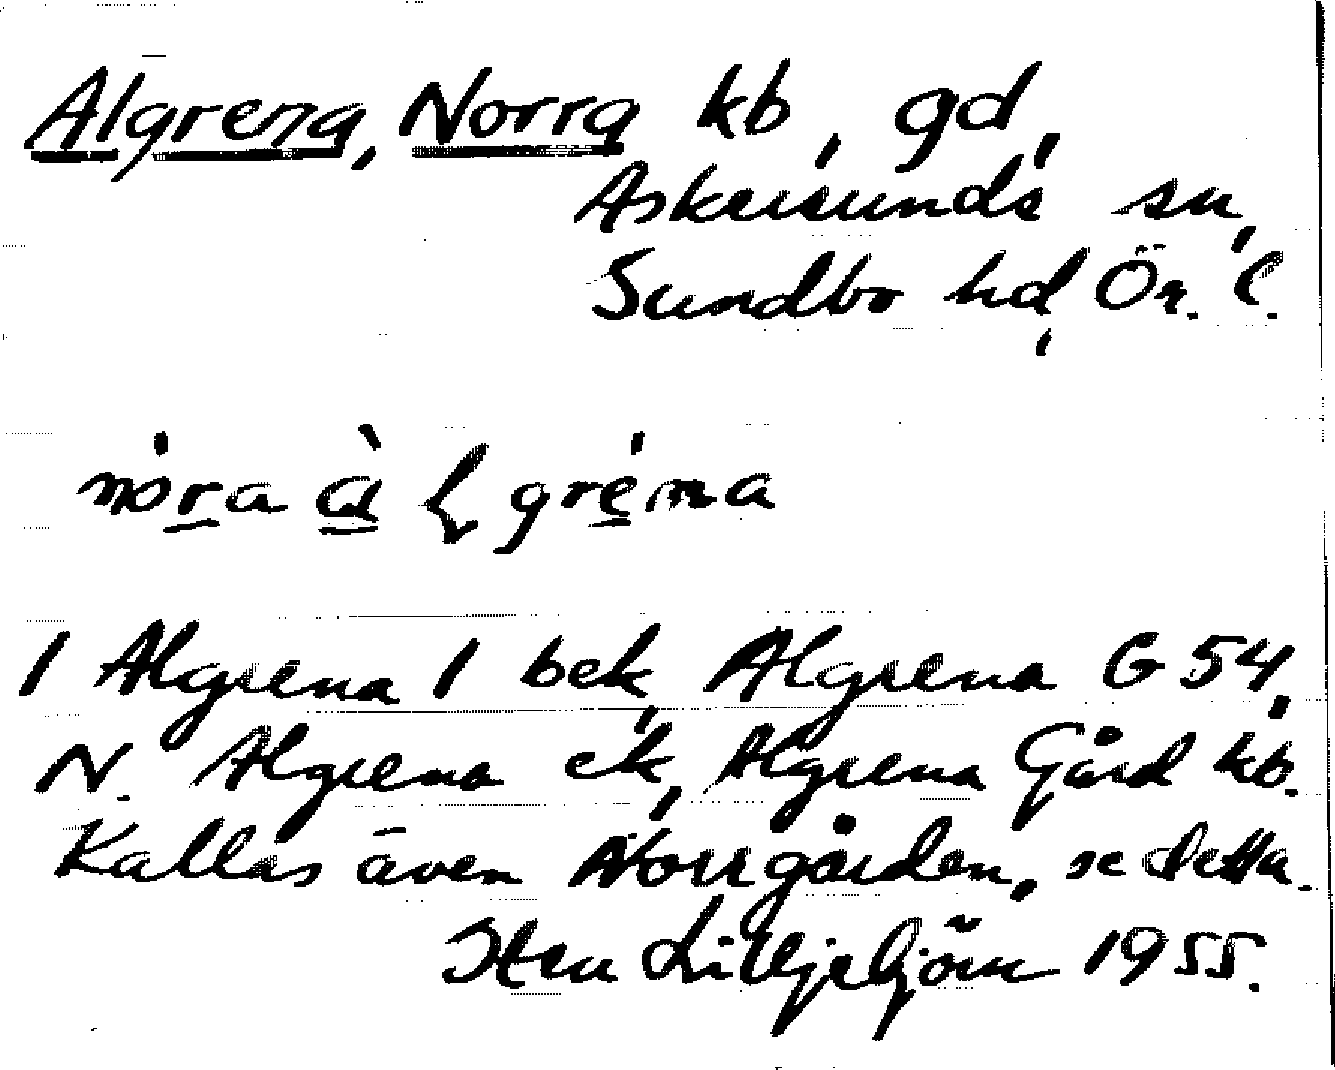 Algrena, Norra kb, gd,
Askersunds sn,
Sundbo hd, Ör. l.
nóra
1 Algrena 1 bek, Algrena G 54,
N. Algrena ek, Algrena Gård kb.
Kallas även Norrgården, se detta.
Sten Lilljebjörn 1955.